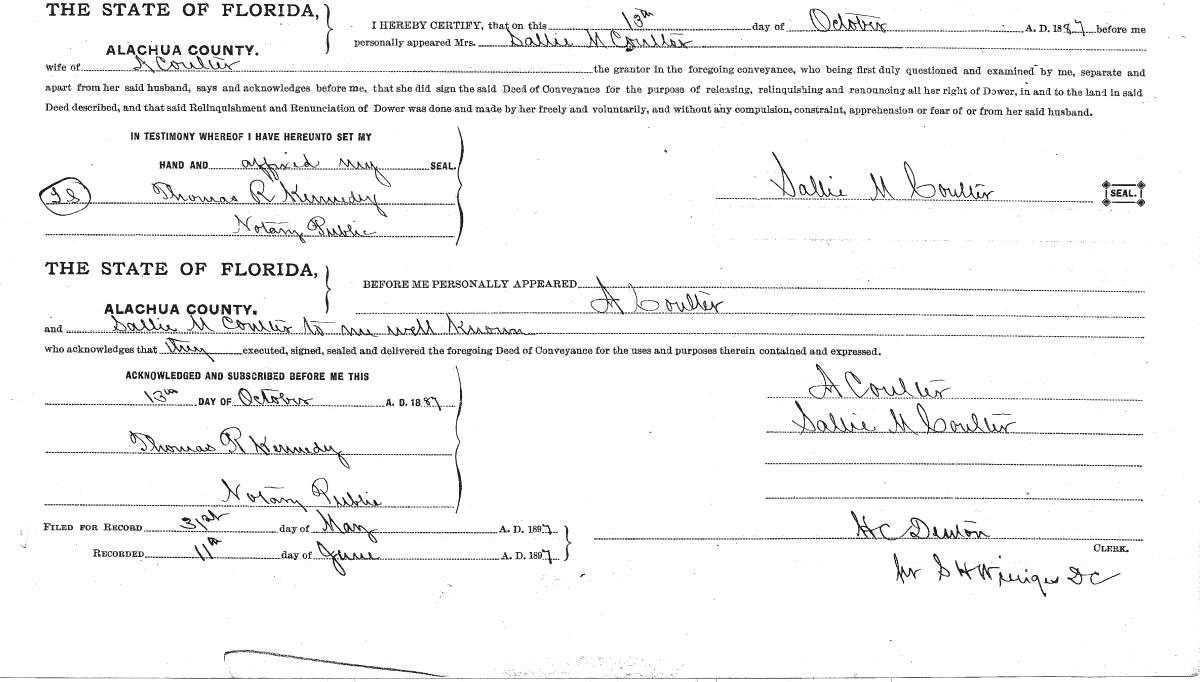 THE STATE OF FLORIDA,
ALACHUA COUNTY.
I HEREBY CERTIFY, that on this 13th day of October A. D. 1887 before me
personally appeared Mrs. Sallie M Coulter
wife of A Coulter the grantor in the foregoing conveyance, who being first duly questioned and examined by me, separate and
apart from her said husband, says and acknowledges before me, that she did sign the said Deed of Conveyance for the purpose of releasing, relinquishing and renouncing all her right of Dower, in and to the land in said
Deed described, and that said Relinquishment and Renunciation of Dower was done and made by her freely and voluntarily, and without any compulsion, constraint, apprehension or fear of or from her said husband.
IN TESTIMONY WHEREOF I HAVE HEREUNTO SET MY
HAND AND affixed my SEAL.
LS Thomas R Kennedy
Notary Public
Sallie M Coulter SEAL.
THE STATE OF FLORIDA,
ALACHUA COUNTY.
BEFORE ME PERSONALLY APPEARED
A Coulter
and Sallie M Coulter to me well known
who acknowledges that they executed, signed, sealed and delivered the foregoing Deed of Conveyance for the uses and purposes therein contained and expressed.
ACKNOWLEDGED AND SUBSCRIBED BEFORE ME THIS
13th DAY OF October A. D. 1887
Thomas R Kennedy
Notary Public
A Coulter
Sallie M Coulter
FILED FOR RECORD 31st day of May A. D. 1897
RECORDED 11th day of June A. D. 1897
H C Denton
CLERK.
S H DC